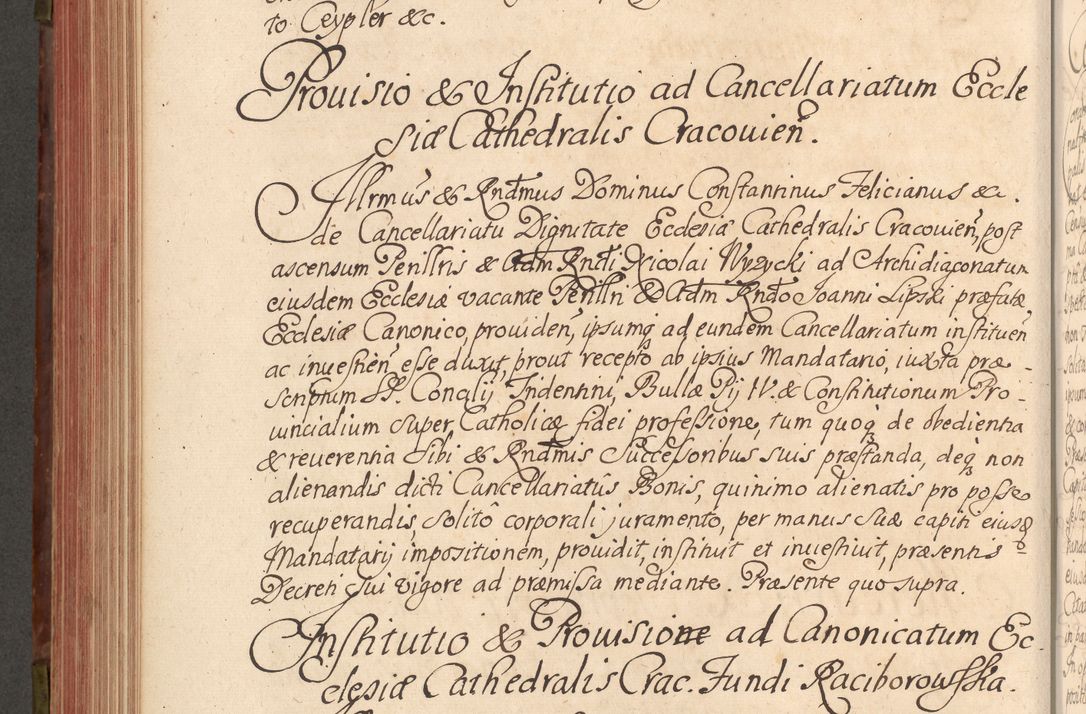 to Ceypler &c.
Prouisio & Institutio ad Cancellariatum Eccle
siæ Cathedralis Cracouien̄.
Illrmus & Rndm̄us Dominus Constantinus Felicianus &c.
de Cancellariatu Dignitate Ecclesiæ Cathedralis Cracouien̄, post
ascensum Perillris & Adm Rndi Nicolai Wyzycki ad Archidiaconatum
eiusdem Ecclesiæ vacante Perillri & Adm Rndo Joanni Lipski præfatæ
Ecclesiæ Canonico, prouiden̄, ipsumq3 ad eundem Cancellariatum instituen̄
ac inuestien̄ esse duxit, prout recepto ab ipsius Mandatario, iuxta præ-
scriptum SS. Concilij Tridentini, Bullæ Pij IV. & Constitutionum Pro-
uincialium super Catholicæ fidei professione, tum quoq3 de obedientia
& reuerentia Sibi & Rndm̄is Successoribus suis præstanda, deq3 non
alienandis dicti Cancellariatûs Bonis, quinimo alienatis pro posse
recuperandis, solitô corporali juramento, per manus suæ capiti eiusd
Mandatarij impositionem, prouidit, instituit et inuestiuit, præsentis
Decreti sui vigore ad præmissa mediante. Præsente quo supra.
Institutio & Prouisione ad Canonicatum Ec-
clesiæ Cathedralis Crac. Fundi Raciborowsska.